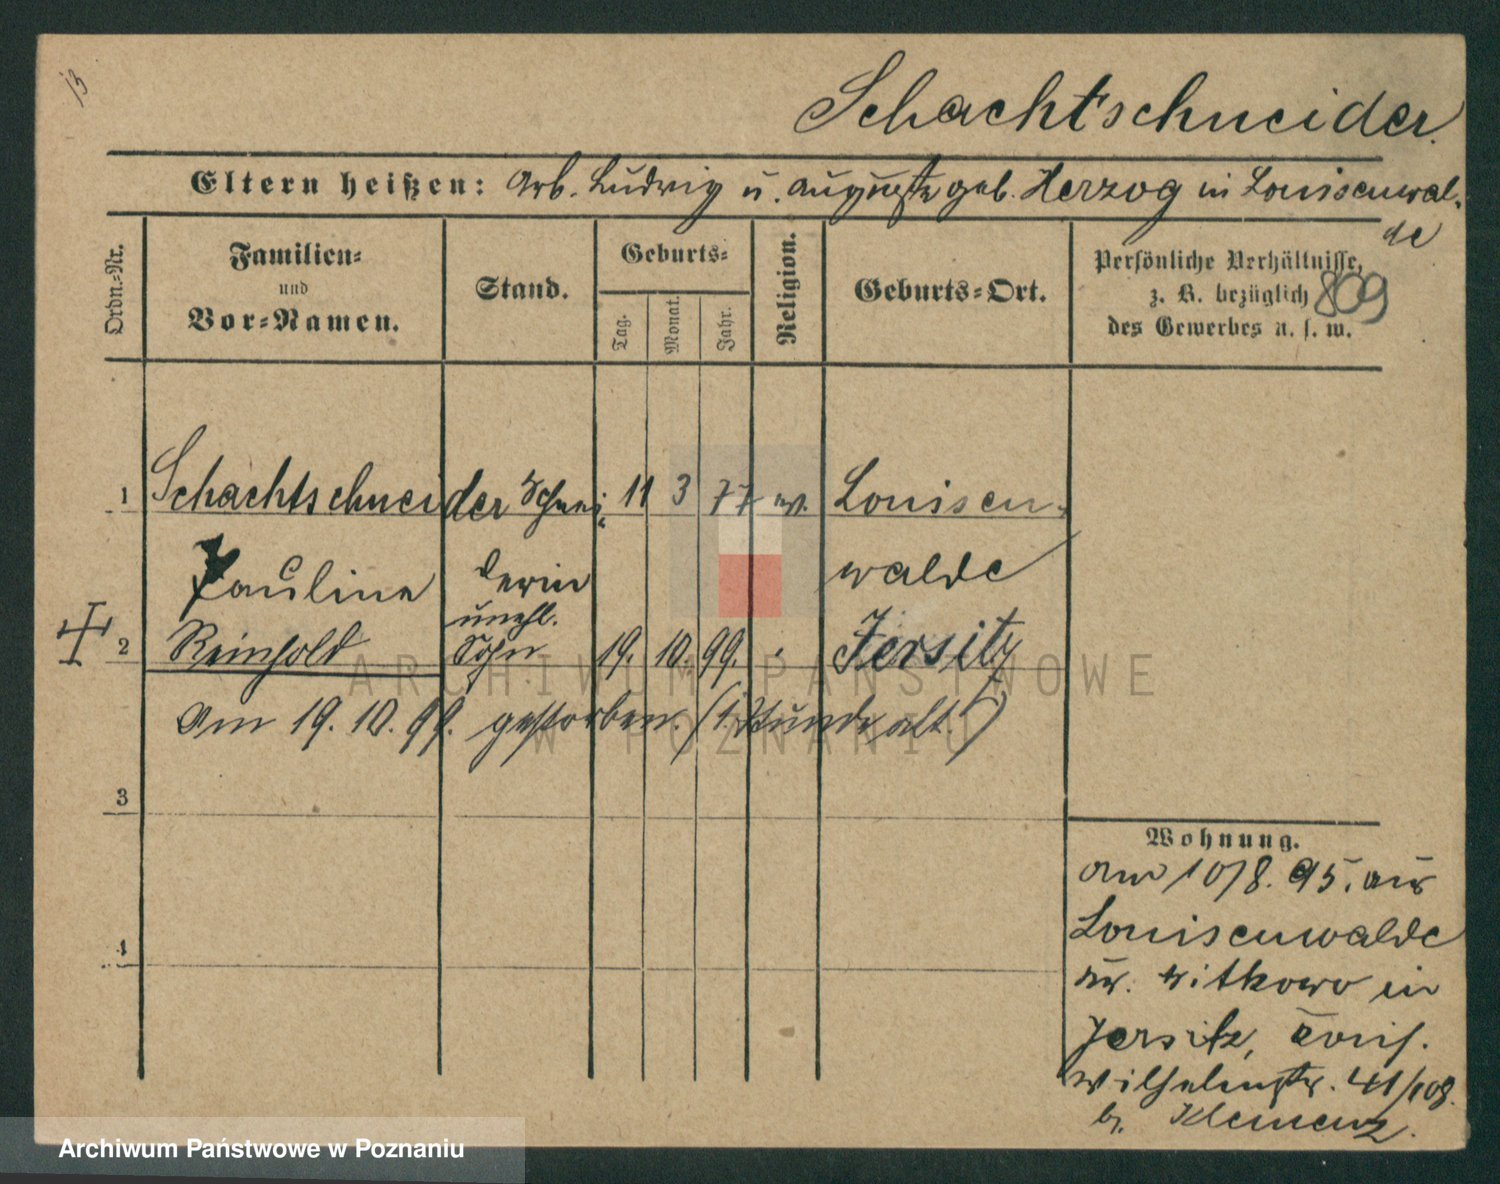 13
Schachtschneider.
Eltern heißen: Arb. Ludwig u. Auguste geb. Herzog in Louisenwal-
de
Ordn.-Nr.
Familien-
und
Vor-Namen.
Stand.
Geburts-
Tag.
Monat.
Jahr.
Religion.
Geburts-Ort.
Persönliche Verhältnisse,
z. B. bezüglich
des Gewerbes u. s. w.
809
1 Schachtschneider Schnei- 11 3 77 ev. Louisen-
Pauline derin walde
unehl.
2 Reinhold Sohn 19. 10. 99. Jersitz
Am 19. 10. 99. gestorben. (1 Stunde alt.)
3
4
Wohnung.
Am 10/8. 95. aus
Louisenwalde
Kr. Witkowo in
Jersitz,
Wilhelmstr. 41/108.
b. Klemenz.
ARCHIWUM PAŃSTWOWE
W POZNANIU
Archiwum Państwowe w Poznaniu